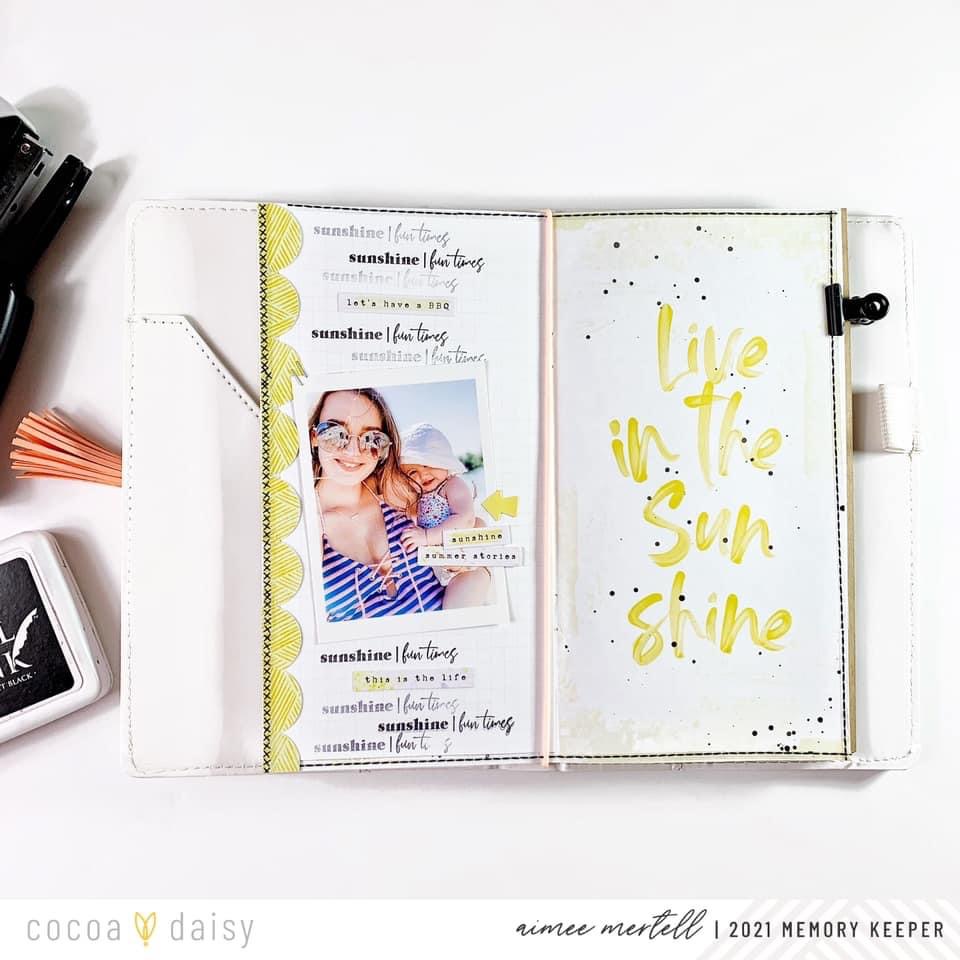 sunshine | fun times
sunshine | fun times
sunshine | fun times
let's have a BBQ
sunshine | fun times
sunshine | fun times
sunshine
summer stories
sunshine | fun times
this is the life
sunshine | fun times
sunshine | fun times
sunshine | fun
Live
in the
Sun
shine
BLACK
cocoa daisy
aimee mertell | 2021 MEMORY KEEPER